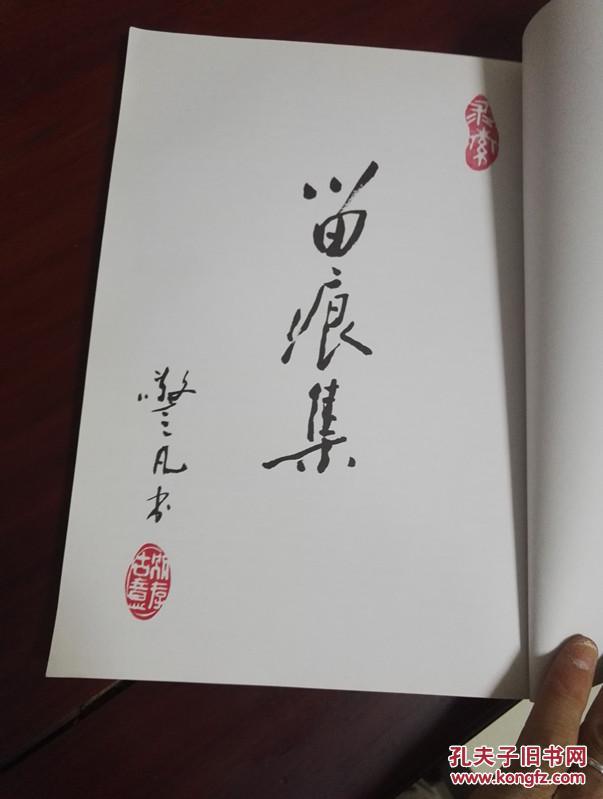 求索
留痕集
警凡书
古意
孔夫子旧书网
www.kongfz.com